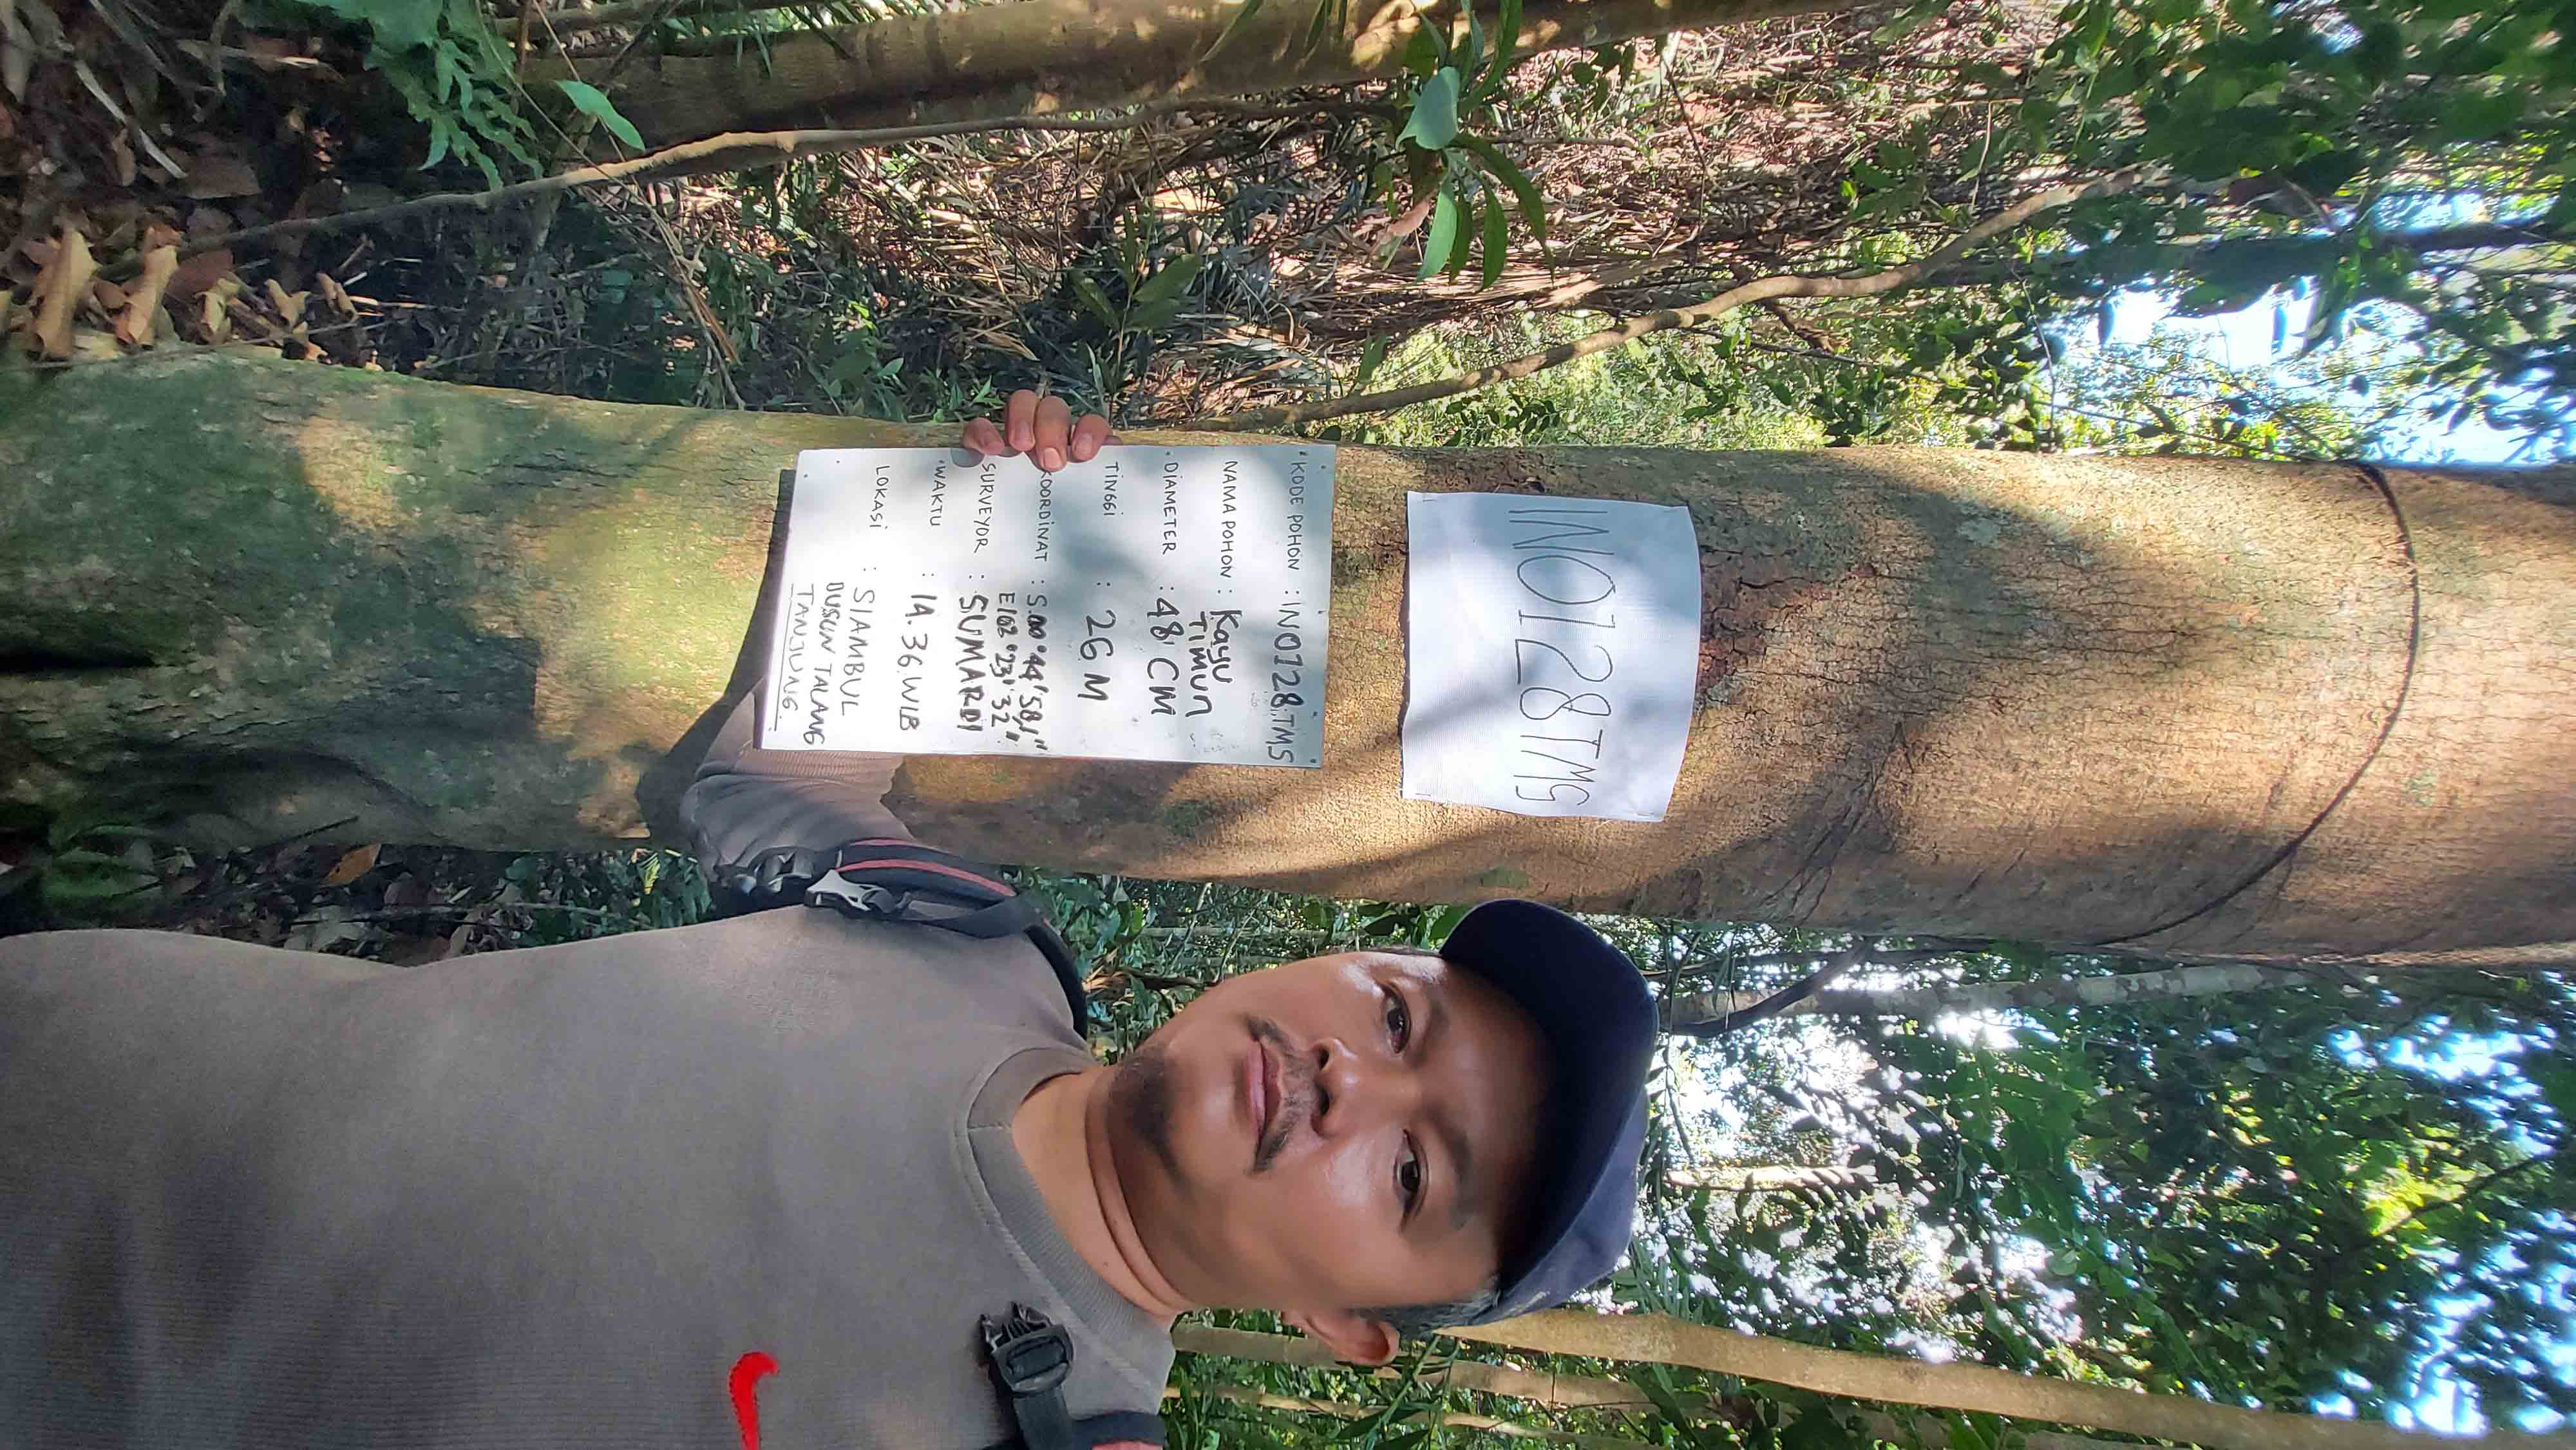 INO128TMS
KODE POHON : INO128.TMS
NAMA POHON : Kayu
TIMUN
DIAMETER : 48 CM
TINGGI : 26 M
KOORDINAT : S.00°44'58,1"
E102°23'32"
SURVEYOR : SUMARDI
WAKTU : 14.36 WIB
LOKASI : SIAMBUL
DUSUN TALANG
TANJUNG.